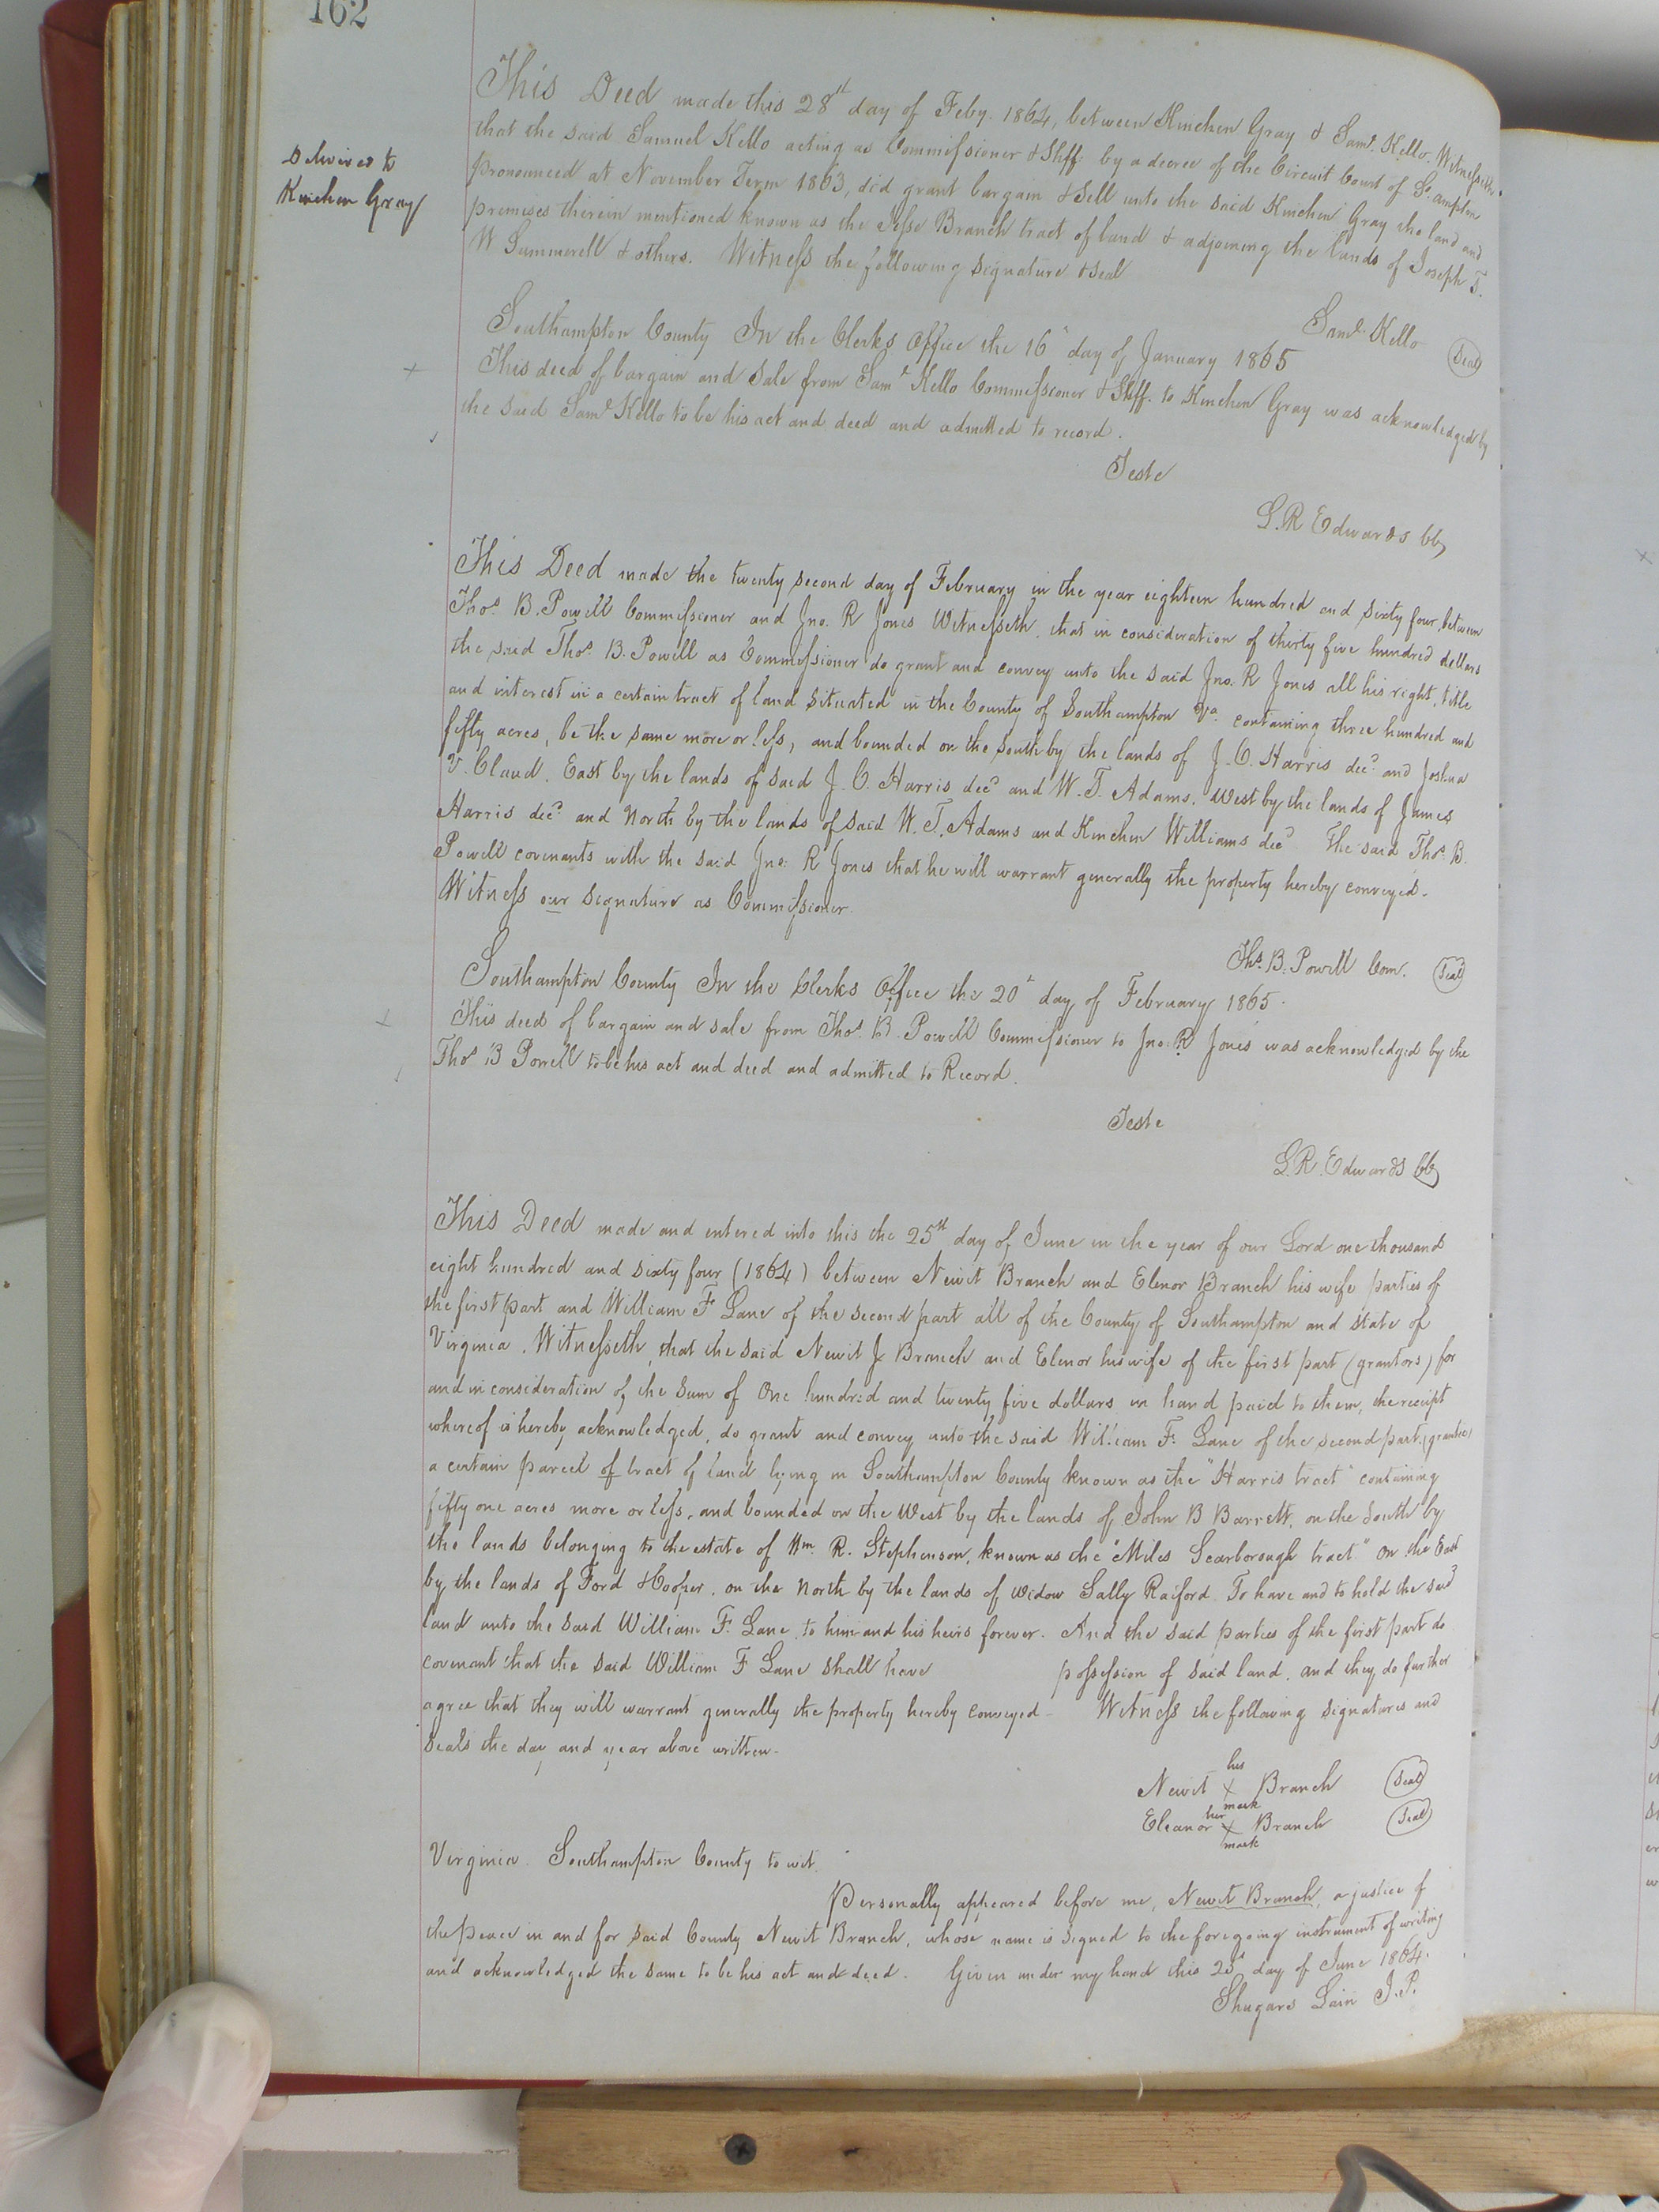 162
This Deed made this 28th day of Feby. 1864, between Kinchen Gray & Saml. Kello. Witnesseth.
that the said Samuel Kello acting as Commissioner & Shff by a decree of the Circuit Court of So. ampton
pronounced at November Term 1863, did grant bargain & sell unto the said Kinchen Gray the land and
premises therein mentioned known as the Jesse Branch tract of land & adjoining the lands of Joseph T.
W Summerell & others. Witness the following signature & seal
Delivered to
Kinchen Gray
Saml. Kello Seal
Southampton County In the Clerks Office the 16" day of January 1865
This deed of bargain and sale from Saml Kello Commissioner & Shff. to Kinchen Gray was acknowledged by
the said Saml Kello to be his act and deed and admitted to record.
Teste
L.R Edwards CC
This Deed made the twenty second day of February in the year eighteen hundred and sixty four, between
Thos B. Powell Commissioner and Jno. R Jones Witnesseth, that in consideration of thirty five hundred dollars
the said Thos B. Powell as Commissioner do grant and convey unto the said Jno. R Jones all his right, title
and interest in a certain tract of land situated in the County of Southampton Va. containing three hundred and
fifty acres, be the same more or less, and bounded on the South by the lands of J. C. Harris decd and Joshua
V. Claud. East by the lands of said J. C. Harris decd and W. T. Adams. West by the lands of James
Harris decd and North by the lands of said W. T. Adams and Kinchen Williams decd The said Thos B.
Powell covenants with the said Jno: R Jones that he will warrant generally the property hereby conveyed.
Witness our signature as Commissioner.
Ths. B. Powell Com. Seal
Southampton County In the Clerks Office the 20" day of February 1865.
This deed of bargain and sale from Thos. B. Powell Commissioner to Jno: R Jones was acknowledged by the
Thos B Powell to be his act and deed and admitted to Record.
Teste
L.R. Edwards CC
This Deed made and entered into this the 25th day of June in the year of our Lord one thousand
eight hundred and sixty four (1864) between Newit Branch and Elenor Branch his wife parties of
the first part and William F Lane of the second part all of the County of Southampton and State of
Virginia. Witnesseth, that the said Newit J Branch and Elenor his wife of the first part (grantors) for
and in consideration of the sum of One hundred and twenty five dollars in hand paid to them, the receipt
whereof is hereby acknowledged, do grant and convey unto the said William F. Lane of the second part, (grantee)
a certain parcel of tract of land lying in Southampton County known as the "Harris tract" containing
fifty one acres more or less, and bounded on the West by the lands of John B Barrett, on the South by
the lands belonging to the estate of Wm R. Stephenson, known as the "Miles Scarborough tract." on the East
by the lands of Ford & Hooper. on the North by the lands of widow Sally Raiford To have and to hold the said
land unto the said William F. Lane, to him and his heirs forever. And the said parties of the first part do
covenant that the said William F Lane shall have possession of said land. and they do further
agree that they will warrant generally the property hereby conveyed - Witness the following signatures and
seals the day and year above written.
his
Newit X Branch Seal
mark
her
Eleanor X Branch Seal
mark
Virginia. Southampton County to wit.
Personally appeared before me, Newit Branch, a justice of
the peace in and for said County Newit Branch, whose name is signed to the foregoing instrument of writing
and acknowledged the same to be his act and deed. Given under my hand this 25" day of June 1864.
Shugars Lain J.P.